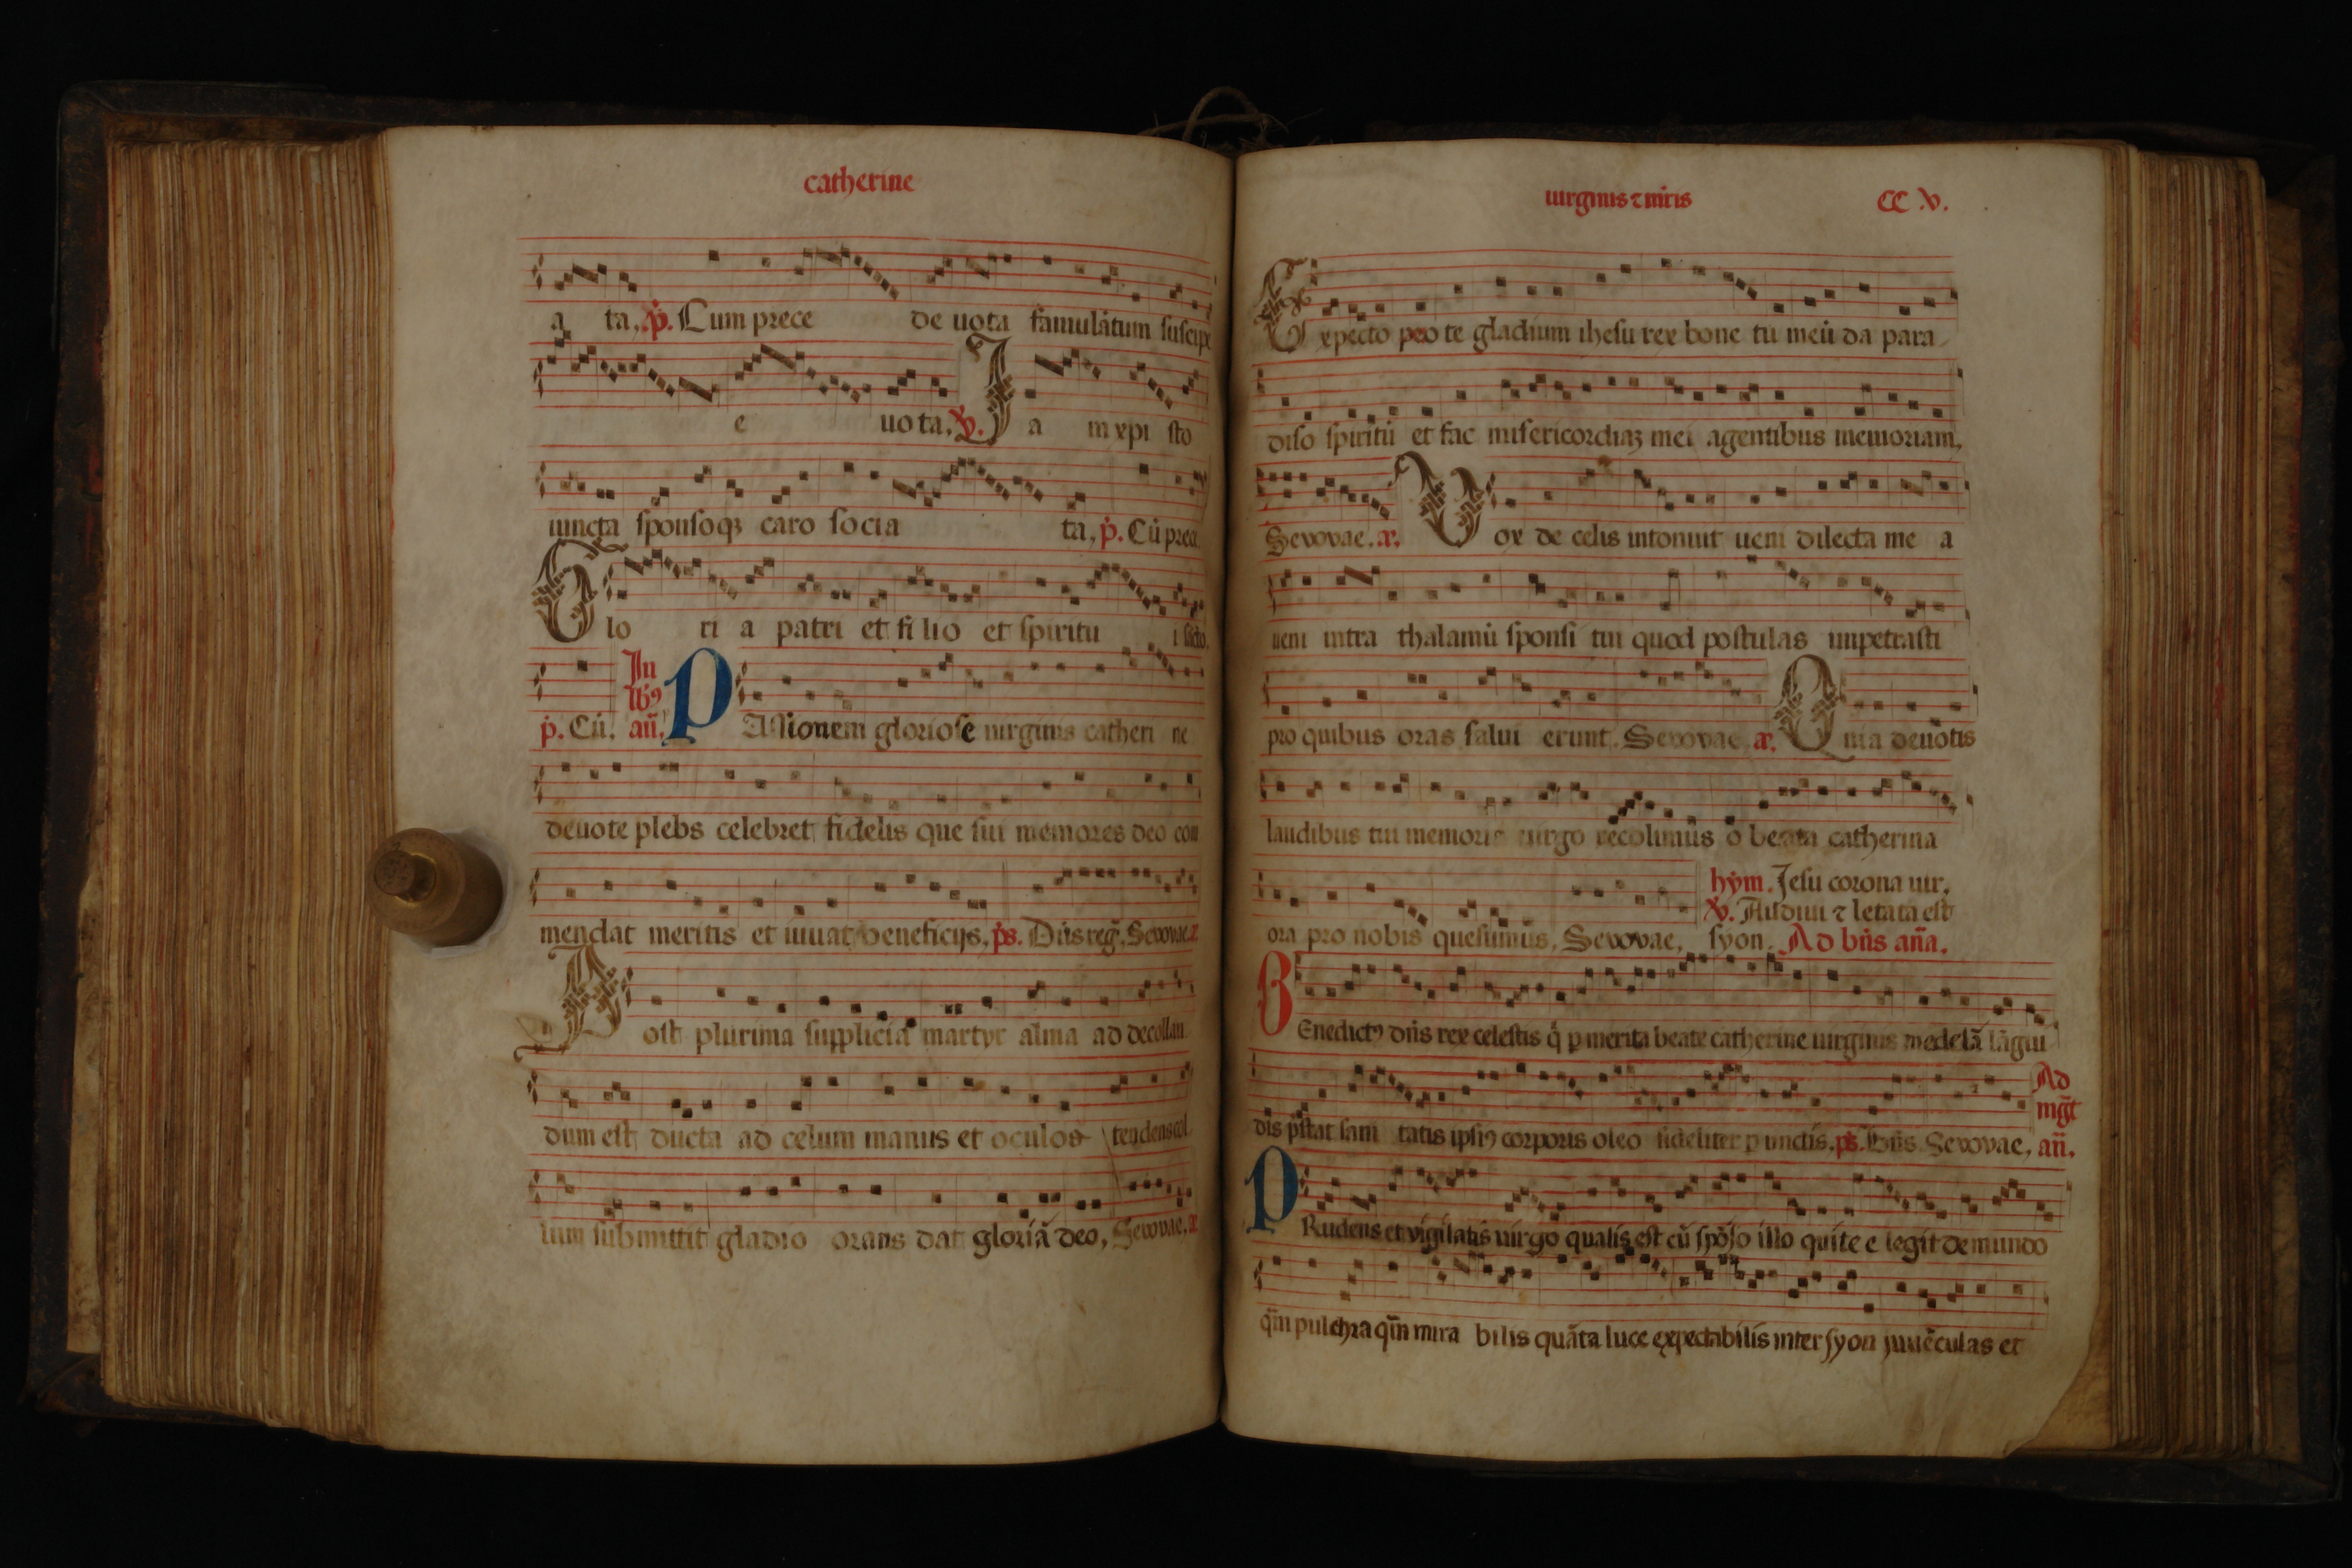 catherine
a ta, p. Cum prece de uota famulatum suscipe
e uota. V. Ia m xpi sto
iuncta sponsoqz caro socia ta, p. Cu prece
Glo ri a patri et fi lio et spiritu i scto.
p. Cu. In lb9 an. PAssionem gloriose uirginis catheri ne
deuote plebs celebret fidelis que sui memores deo com
mendat meritis et iuuat beneficijs, ps. Dns reg. Seuouae. a
Post plurima supplicia martyr alma ad decollan
dum est ducta ad celum manus et oculos tendens col
lum submittit gladio orans dat gloriā deo, Seuouae. a
uirginis ⁊ mris CC .V.
Expecto pro te gladium ihesu rex bone tu meū da para
diso spiritū et fac misericordiaz mei agentibus memoriam,
Seuouae. a. Vox de celis intonuit ueni dilecta me a
ueni intra thalamū sponsi tui quod postulas impetrasti
pro quibus oras salui erunt. Seuouae a. Quia deuotis
laudibus tui memoria uirgo recolimus o beata catherina
ora pro nobis quesumus, Seuouae, hym. Jesu corona uir.
V. Audiuit ⁊ letata est
syon. Ad bn̄s an̄a.
BEnedict9 dn̄s rex celestis q̄ p merita beate catherine uirginis medelā lāgui
dis pstat sani tatis ipsi9 corporis oleo fideliter p undis. ps. Bn̄s Seuouae, Ad mḡt an̄.
PRudens et vigilatis uirgo qualis est cū spōso illo qui te e legit de mundo
qm̄ pulchra qm̄ mira bilis quāta luce expectabilis inter syon iuuēculas et